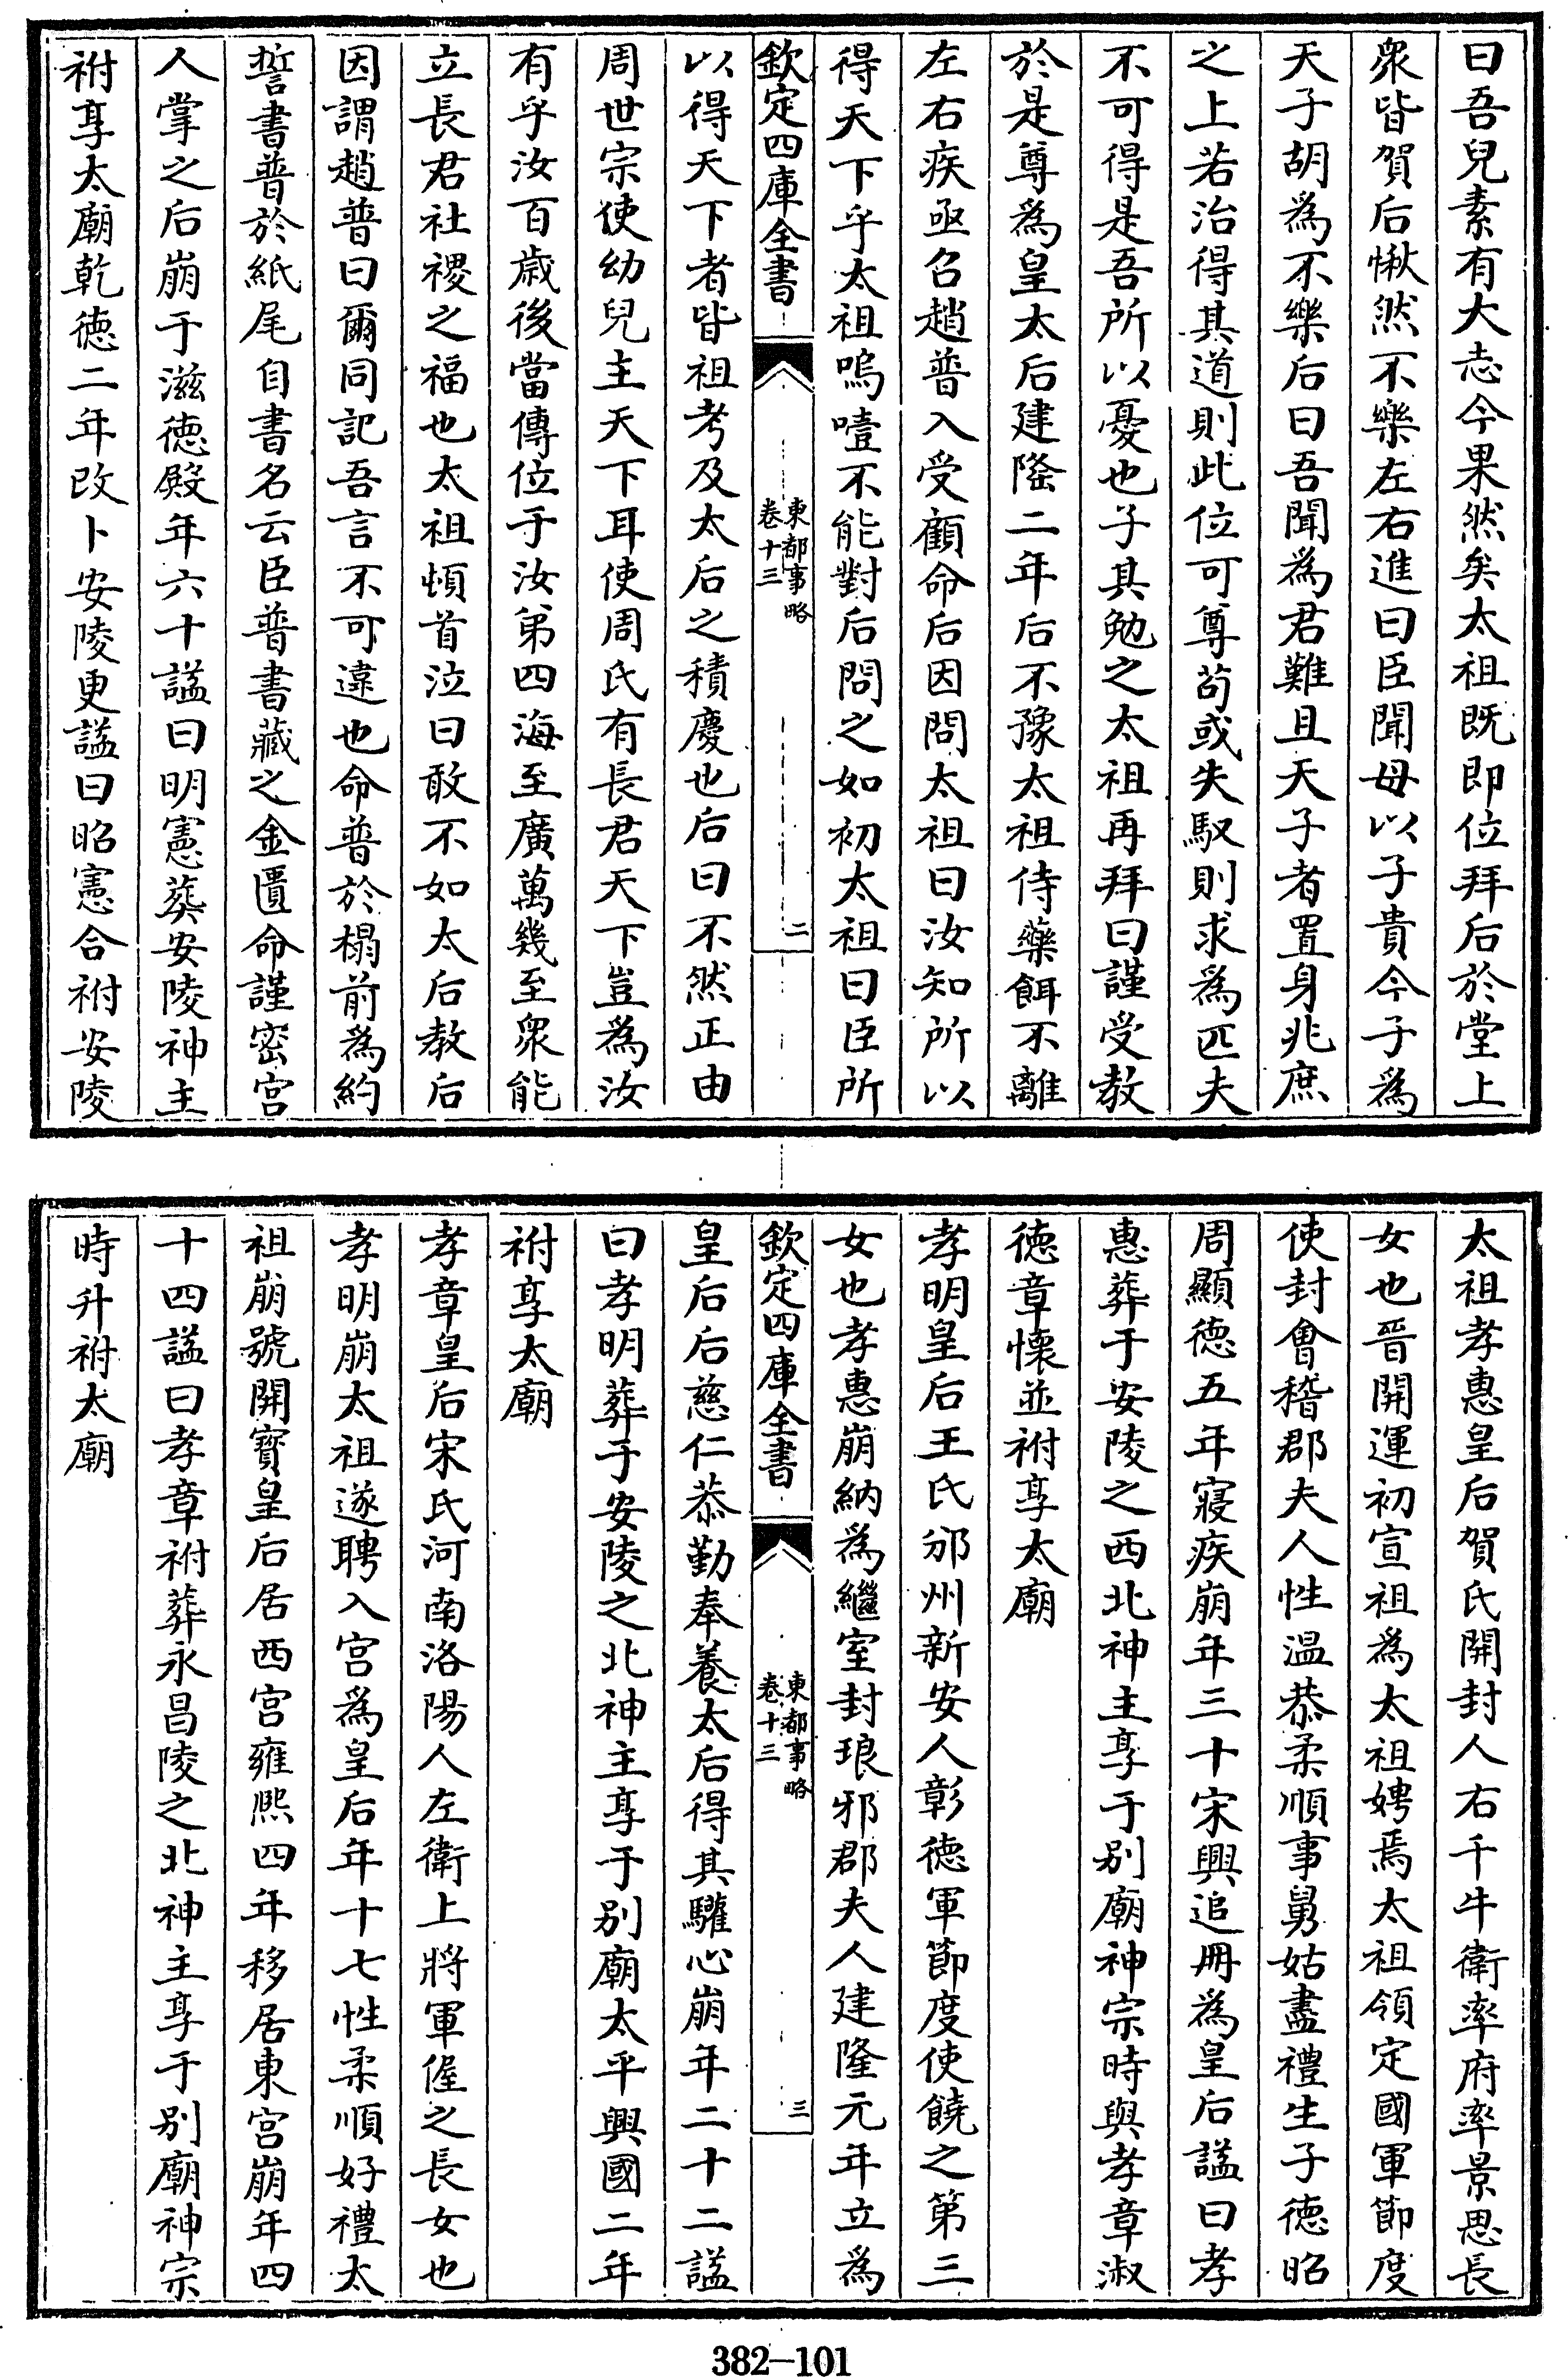 曰吾兒素有大志今果然矣太祖既即位拜后於堂上
衆皆賀后愀然不樂左右進曰臣聞母以子貴今子為
天子胡為不樂后曰吾聞為君難且天子者置身兆庶
之上若治得其道則此位可尊苟或失馭則求為匹夫
不可得是吾所以憂也子其勉之太祖再拜曰謹受教
於是尊為皇太后建隆二年后不豫太祖侍藥餌不離
左右疾亟召趙普入受顧命后因問太祖曰汝知所以
得天下乎太祖嗚噎不能對后問之如初太祖曰臣所
欽定四庫全書
東都事略
卷十三
二
以得天下者皆祖考及太后之積慶也后曰不然正由
周世宗使幼兒主天下耳使周氏有長君天下豈為汝
有乎汝百歲後當傳位于汝弟四海至廣萬幾至衆能
立長君社稷之福也太祖頓首泣曰敢不如太后教后
因謂趙普曰爾同記吾言不可違也命普於榻前為約
誓書普於紙尾自書名云臣普書藏之金匱命謹密宮
人掌之后崩于滋德殿年六十諡曰明憲葬安陵神主
祔享太廟乾德二年改卜安陵更諡曰昭憲合祔安陵
太祖孝惠皇后賀氏開封人右千牛衛率府率景思長
女也晉開運初宣祖為太祖娉焉太祖領定國軍節度
使封會稽郡夫人性温恭柔順事舅姑盡禮生子德昭
周顯德五年寢疾崩年三十宋興追冊為皇后諡曰孝
惠葬于安陵之西北神主享于別廟神宗時與孝章淑
德章懷並祔享太廟
孝明皇后王氏邠州新安人彰德軍節度使饒之第三
女也孝惠崩納為繼室封琅邪郡夫人建隆元年立為
欽定四庫全書
東都事略
卷十三
三
皇后后慈仁恭勤奉養太后得其驩心崩年二十二諡
曰孝明葬于安陵之北神主享于別廟太平興國二年
祔享太廟
孝章皇后宋氏河南洛陽人左衛上將軍偓之長女也
孝明崩太祖遂聘入宫為皇后年十七性柔順好禮太
祖崩號開寳皇后居西宫雍熙四年移居東宫崩年四
十四諡曰孝章祔葬永昌陵之北神主享于別廟神宗
時升祔太廟
382-101